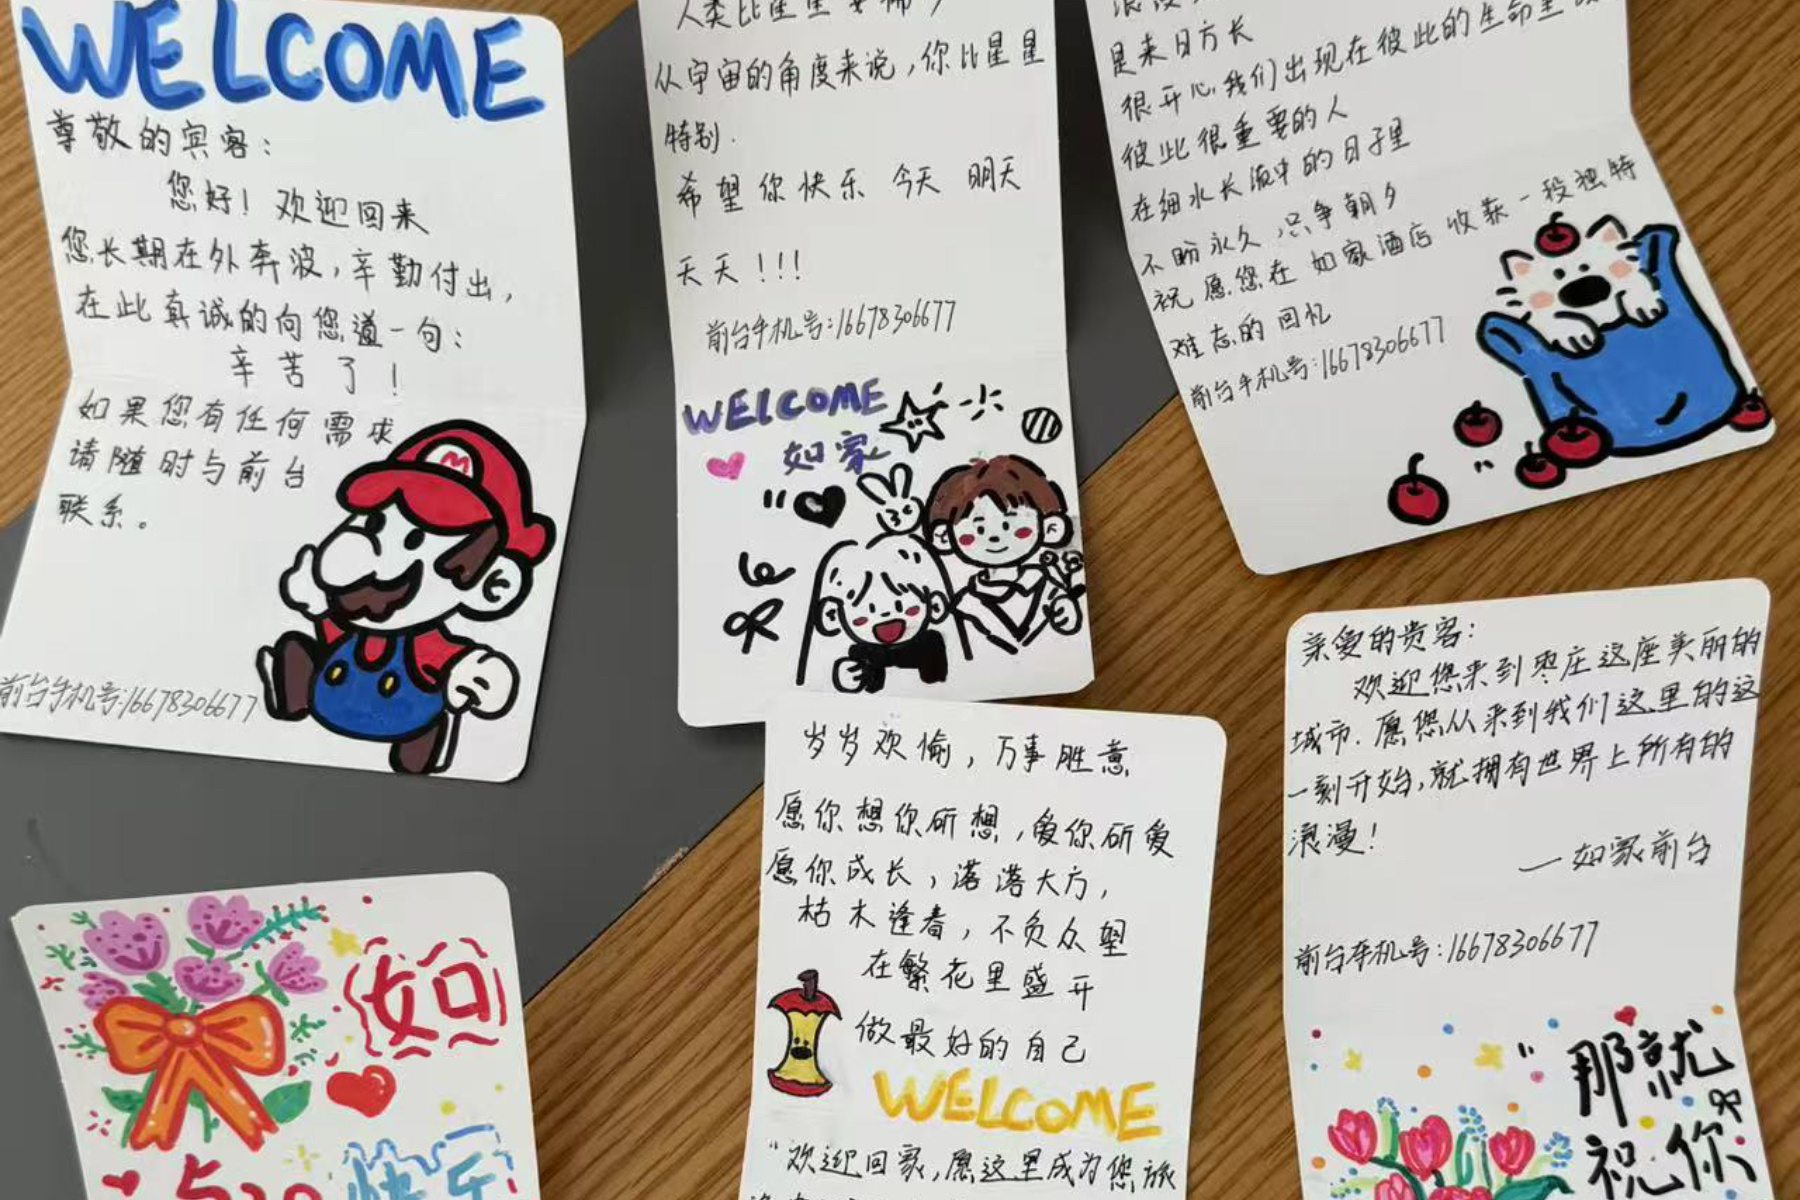 WELCOME
尊敬的宾客：
您好！欢迎回来
您长期在外奔波，辛勤付出，
在此真诚的向您道一句：
辛苦了！
如果您有任何需求
请随时与前台
联系。
前台手机号:16678306677
M
人类比星星要稀少
从宇宙的角度来说，你比星星
特别.
希望你快乐 今天 明天
天天！!!
前台手机号:16678306677
WELCOME
如家
是来日方长
很开心我们出现在彼此的生命里
彼此很重要的人
在细水长流中的日子里
不盼永久，只争朝夕
祝愿您在如家酒店收获一段独特
难忘的回忆
前台手机号:16678306677
亲爱的贵客：
欢迎您来到枣庄这座美丽的
城市.愿您从来到我们这里的这
一刻开始，就拥有世界上所有的
浪漫！
—如家前台
前台手机号:16678306677
那就
祝你
岁岁欢愉，万事胜意
愿你想你所想，爱你所爱
愿你成长，落落大方，
枯木逢春，不负众望
在繁花里盛开
做最好的自己
WELCOME
"欢迎回家，愿这里成为您旅
如
快乐